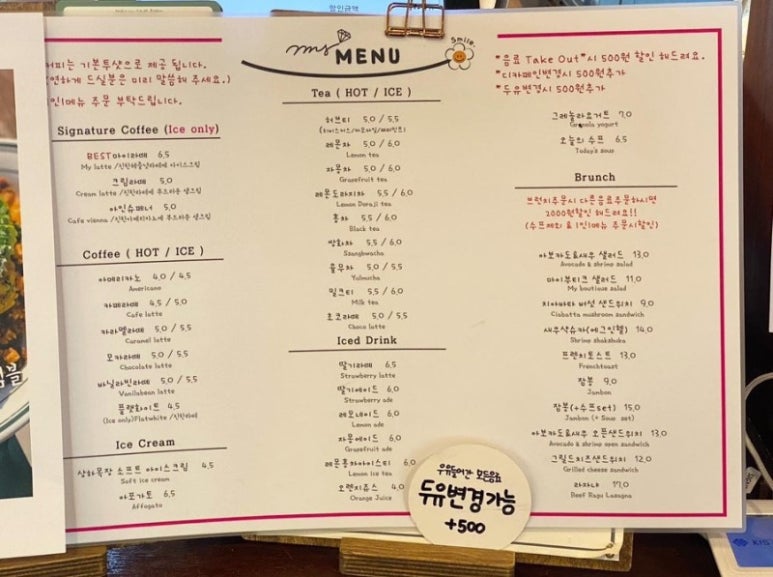 할인금액
ms MENU
Smile.
커피는 기본투샷으로 제공 됩니다.
(연하게 드실분은 미리 말씀해 주세요.)
1인1메뉴 주문 부탁드립니다.
Signature Coffee (Ice only)
BEST마이라떼 6,5
My latte /진한에스프레소
크림라떼 5,0
Cream latte /진한라떼에 부드러운 생크림
아인슈페너 5,0
Cafe vienna /진한아메리카노에 부드러운 생크림
Coffee ( HOT / ICE )
아메리카노 4,0 / 4,5
Americano
카페라떼 4,5 / 5,0
Cafe latte
카라멜라떼 5,0 / 5,5
Caramel latte
모카라떼 5,0 / 5,5
Chocolate latte
바닐라빈라떼 5,0 / 5,5
Vanilabean latte
플랫화이트 4,5
(Ice only)Flatwhite /진한라떼
Ice Cream
상하목장 소프트 아이스크림 4,5
Soft ice cream
아포가토 6,5
Affogato
Tea ( HOT / ICE )
허브티 5,0 / 5,5
레몬차 5,5 / 6,0
Lemon tea
자몽차 5,5 / 6,0
Grapefruit tea
레몬도라지차 5,5 / 6,0
Lemon Doraji tea
홍차 5,5 / 6,0
Black tea
쌍화차 5,5 / 6,0
Ssanghwacha
율무차 5,0 / 5,5
Yulmucha
밀크티 5,5 / 6,0
Milk tea
초코라떼 5,0 / 5,5
Choco latte
Iced Drink
딸기라떼 6,5
Strawberry latte
딸기에이드 6,0
Strawberry ade
레모네이드 6,0
Lemon ade
자몽에이드 6,0
Grapefruit ade
레몬홍차아이스티 6,0
Lemon Ice tea
오렌지쥬스 4,0
Orange Juice
*음료 Take Out*시 500원 할인 해드려요.
*디카페인변경시 500원추가
*두유변경시 500원추가
그레놀라요거트 7,0
Granola yogurt
오늘의 수프 6,5
Today's soup
Brunch
브런치주문시 다른음료주문하시면
2000원할인 해드려요!!
(수프제외 & 1인1메뉴 주문시할인)
아보카도&새우 샐러드 13,0
Avocado & shrimp salad
마이부티크 샐러드 11,0
My boutique salad
치아바타 버섯 샌드위치 9,0
Ciabatta mushroom sandwich
새우샥슈카(에그인헬) 14,0
Shrimp shakshuka
프렌치토스트 13,0
Frenchtoast
잠봉 9,0
Jambon
잠봉(+수프set) 15,0
Jambon (+ Soup set)
아보카도&새우 오픈샌드위치 13,0
Avocado & shrimp open sandwich
그릴드치즈샌드위치 12,0
Grilled cheese sandwich
라자냐 17,0
Beef Ragu Lasagna
우유들어간 모든음료
두유변경가능
+500